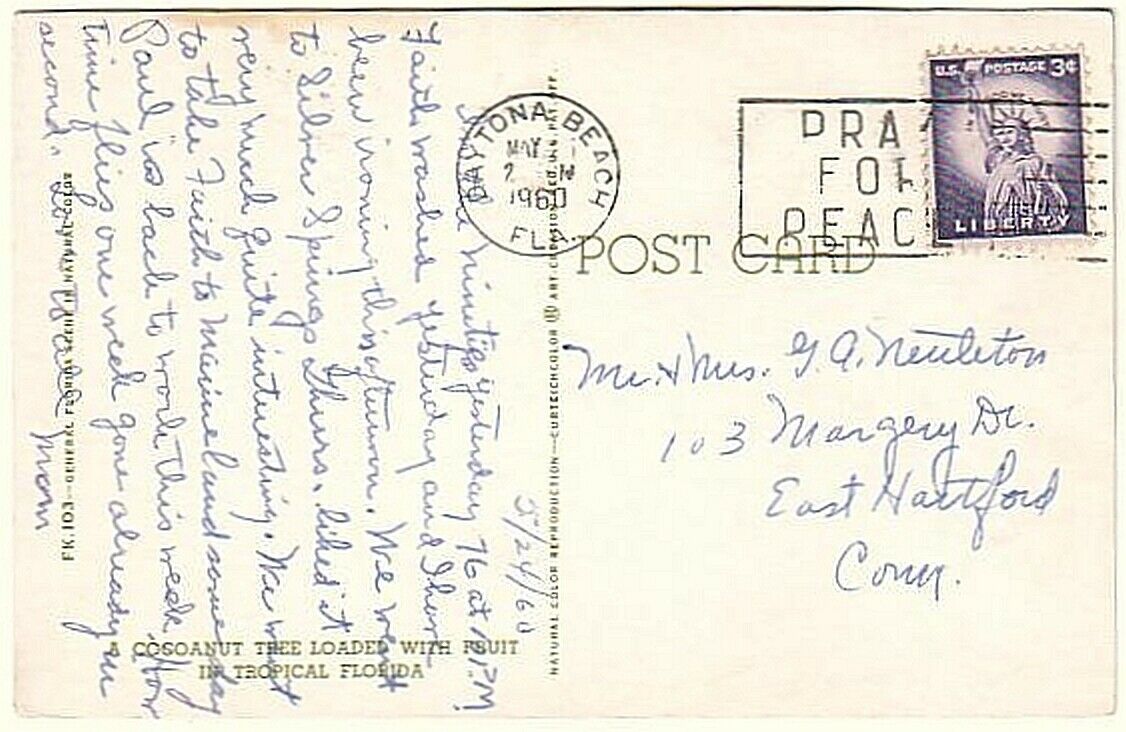 5/24/60
minutes yesterday 76 at P.M
Faith washed yesterday and I have
been ironing this afternoon. We went
to Silver Springs Thurs. liked it
very much quite interesting. We want
to take Faith to Marineland some day
Paul is back to work this week. How
time flies one week gone already in
second. Love to all
Mom
A COCOANUT TREE LOADED WITH FRUIT
IN TROPICAL FLORIDA
FK103—GENERAL FLORIDA
NATURAL COLOR REPRODUCTION—CURTEICHCOLOR ® ART CREATION
DAYTONA BEACH
MAY
1960
FLA.
PRA
FOR
PEAC
U.S. POSTAGE 3¢
LIBERTY
POST CARD
Mr. & Mrs. G. A. Nettleton
103 Margery Dr.
East Hartford
Conn.